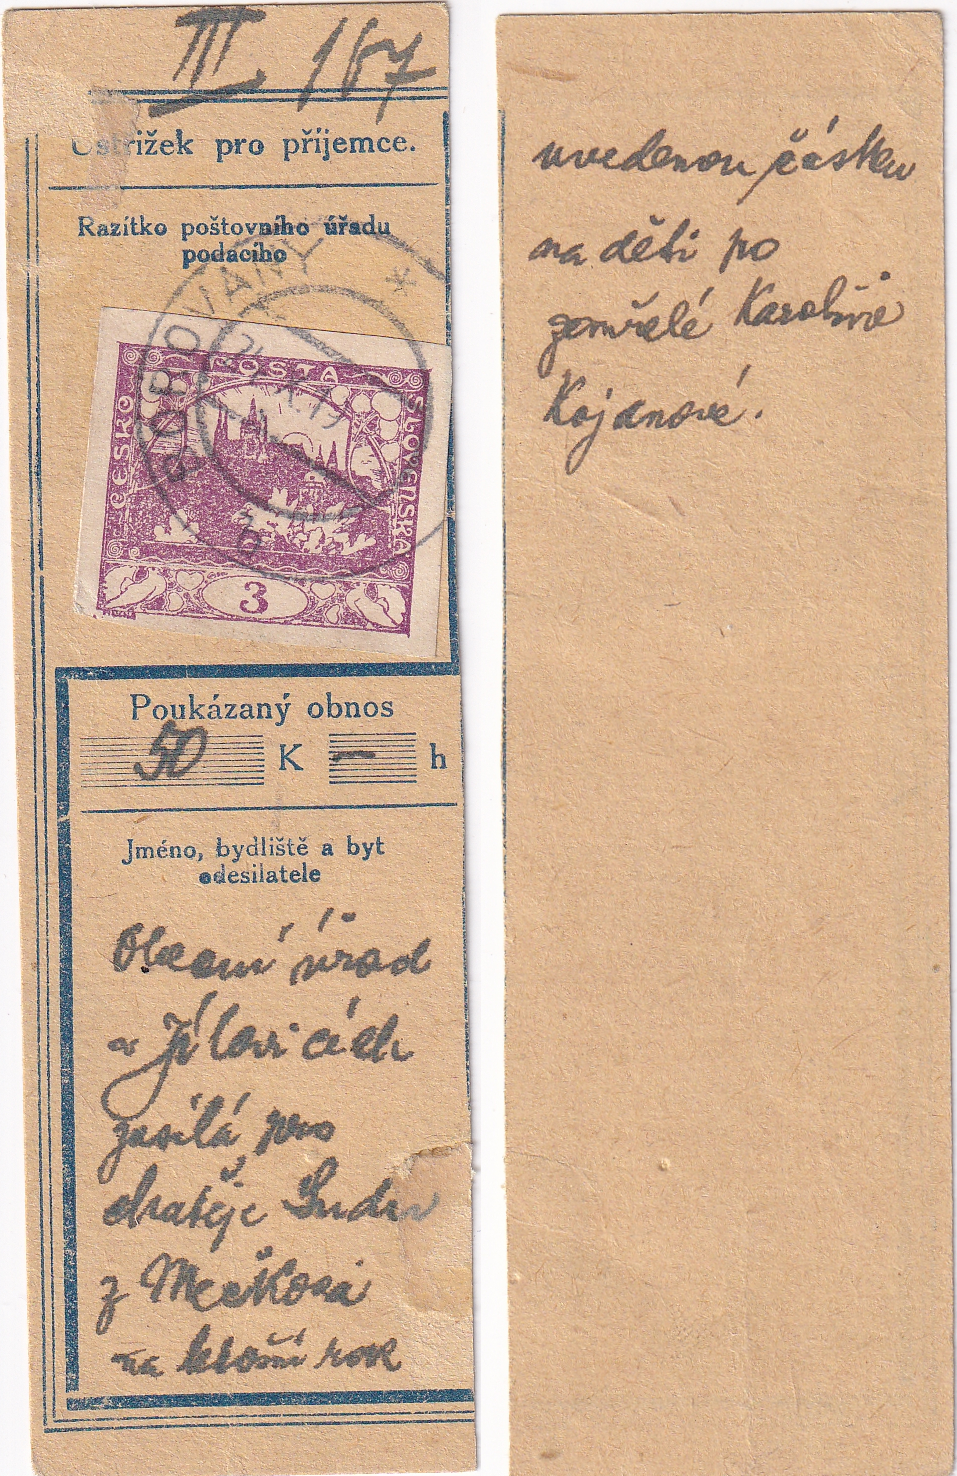 III. 167
Ústřižek pro příjemce.
Razítko poštovního úřadu
podacího
BOROVANY *
21.X.19
POŠTA
ČESKO
SLOVENSKÁ
3
Poukázaný obnos
50 K — h
Jméno, bydliště a byt
odesilatele
Obecní úřad
v Jílovicích
zasílá pro
z
na letoší rok
uvedenou částku
na děti po
zemřelé Karolině
Kojanové.